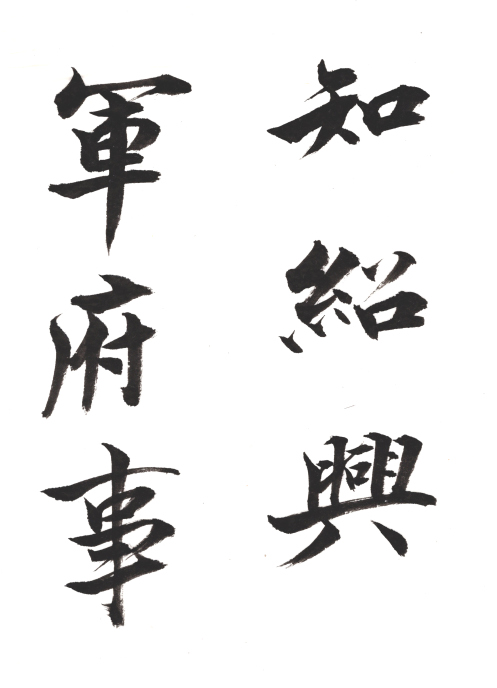 知紹興
軍府事